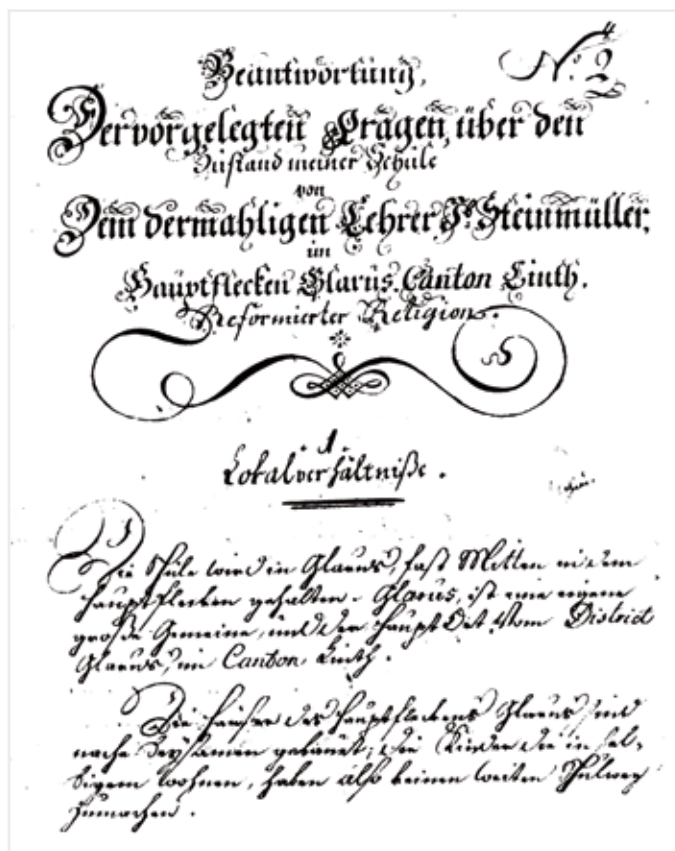 Beantwortung,
N.º 2
Der vorgelegten Fragen, über den
Zustand meiner Schule
von
Dem dermahligen Lehrer, Jº Steinmüller,
im
Hauptflecken Glarus. Canton Linth.
Reformierter Religion.
1
Lokalverhältniße.
Die Schule wird in Glarus, fast Mitten in dem
Hauptflecken gehalten. Glarus, ist eine eigene
große Gemeine, und der Haupt Ort, Vom District
Glarus, im Canton Linth.
Die Häuser des Hauptfleckens Glarus sind
nache beysamen gebauet; die Kinder die in sel-
bigem wohnen, haben also keinen weiten Schulweg
zumachen.